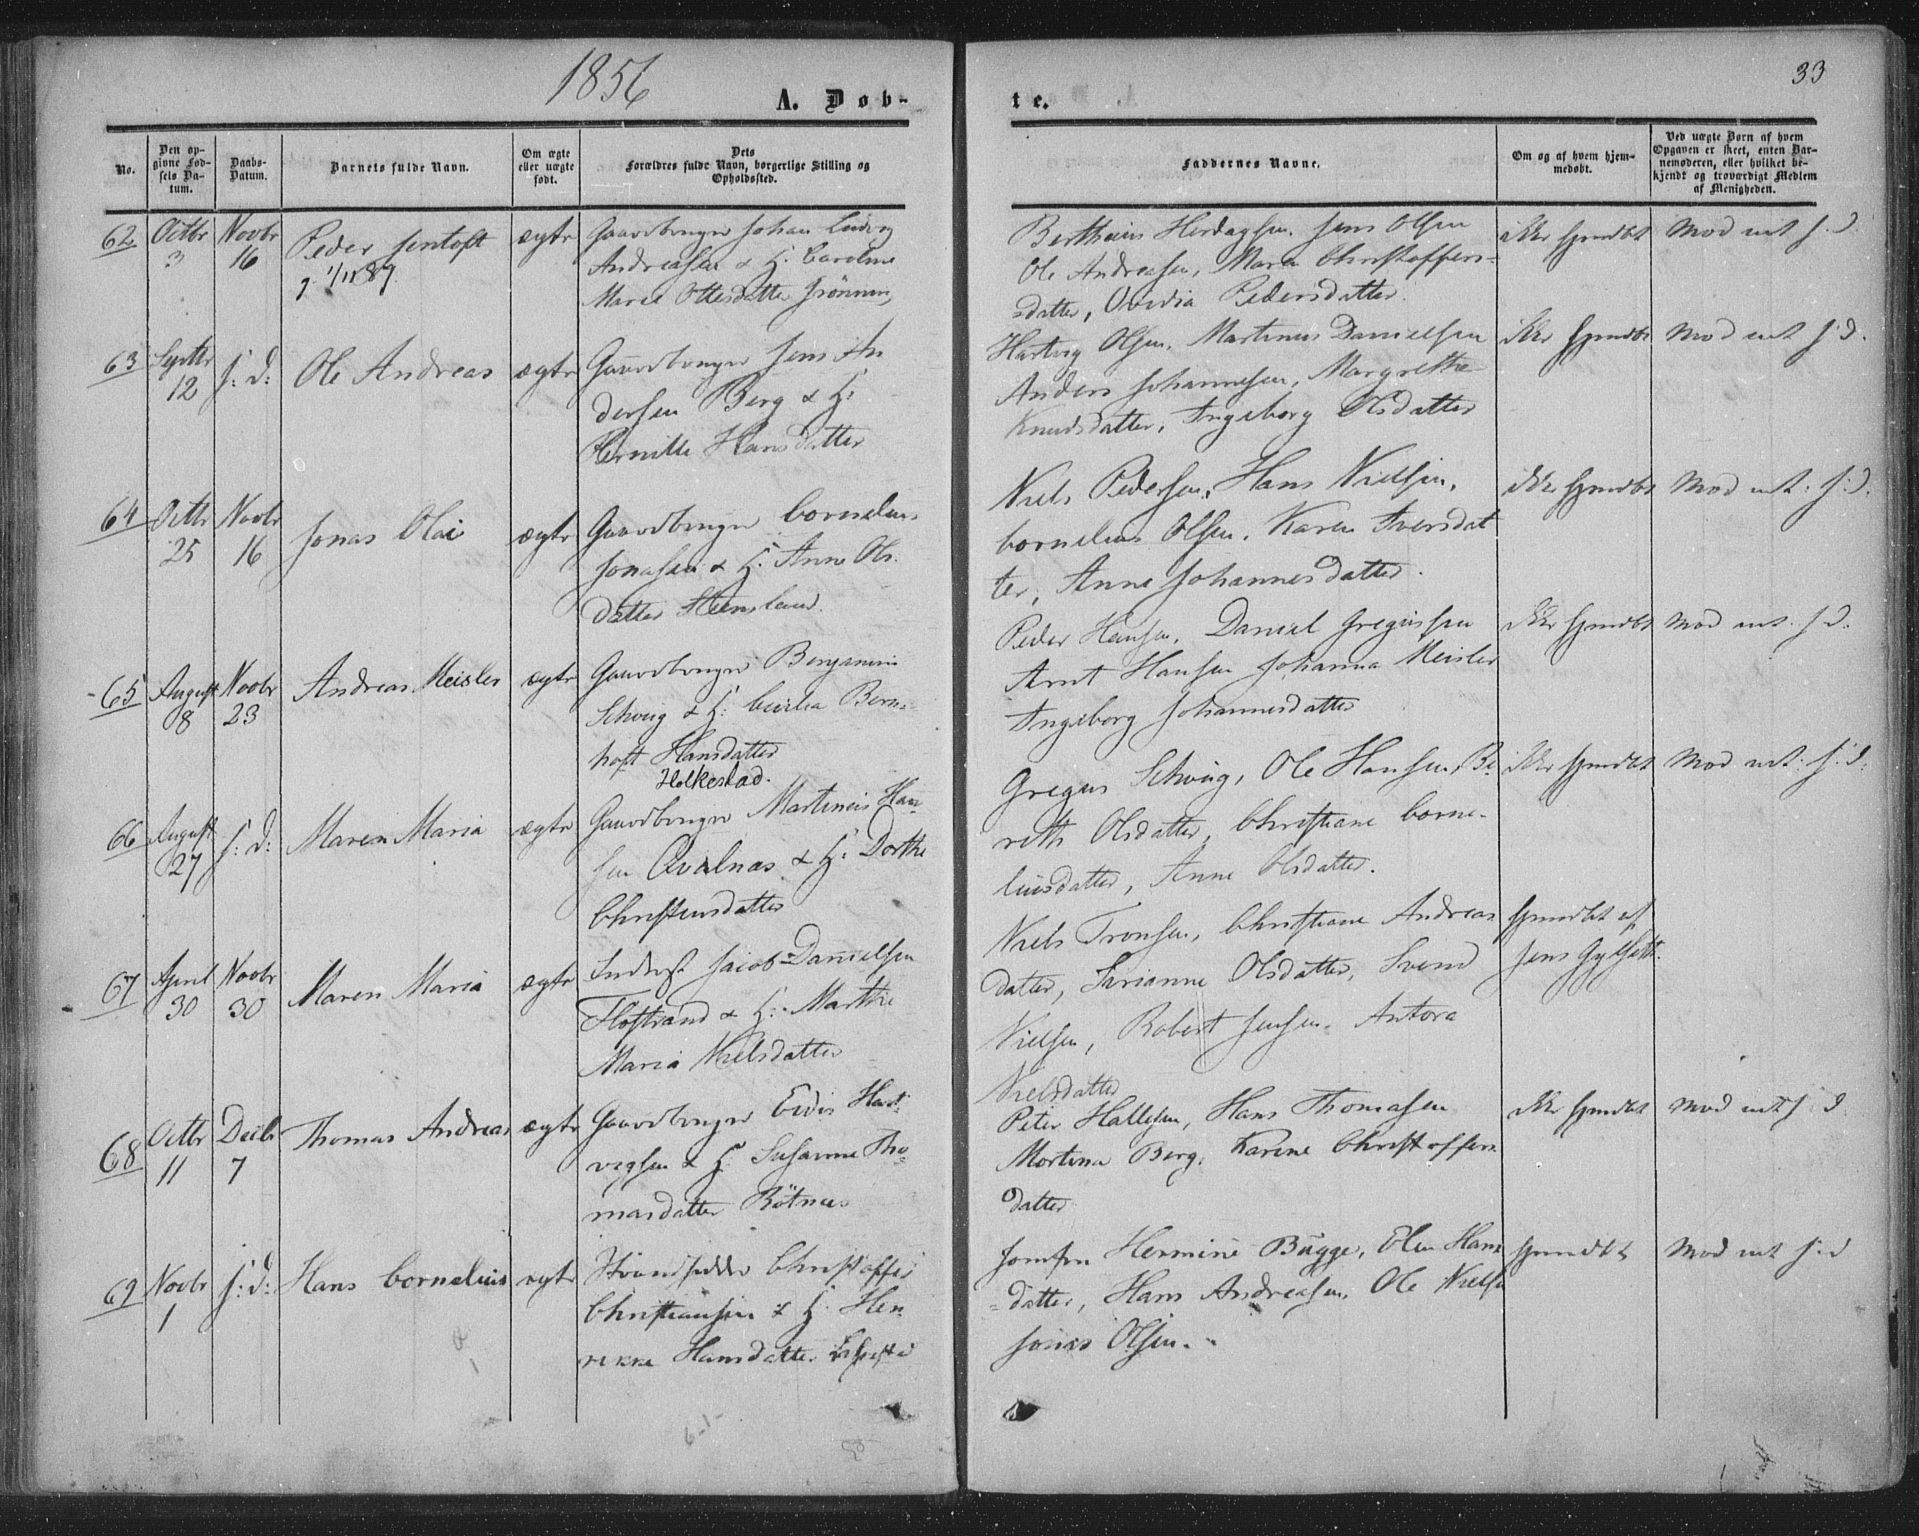 1856
33
A. Døb-
te.
No.
Den op-
givne Fød-
sels Da-
tum.
Daabs-
Datum.
Barnets fulde Navn.
Om ægte
eller uægte
født.
Dets
Forældres fulde Navn, borgerlige Stilling og
Opholdssted.
Faddernes Navne.
Om og af hvem hjem-
medøbt.
Ved uægte Børn af hvem
Opgaven er skeet, enten Bar-
nemoderen, eller hvilket be-
kjendt og troværdigt Medlem
af Menigheden.
62
Octbr
3
Novbr
16
Peder Jentoft
1/11 87
ægte
Gaardbruger Johan Ludvig
Andreasen & H. Caroline
Marie Ottesdatter
Bertheus Hendagsen, Jens Olsen
Ole Andreasen, Maren Christoffers-
datter, Ovedia Pedersdatter.
ikke hjemdbt
Mod att s. d.
63
Septbr
12
s: d:
Ole Andreas
ægte
Gaardbruger Jens An
dersen Berg & H:
Pernille Hansdatter
Hartvig Olsen, Martinus Danielsen
Anders Johannesen, Margrethe
Knudsdatter, Ingeborg Olsdatter
ikke hjemdbt
Mod att s. d.
64
Octbr
25
Novbr
16
Jonas Olai
ægte
Gaardbruger Cornelius
Jonasen & H. Anne Ols-
datter Steensland.
Niels Pedersen, Hans Nielsen,
Cornelius Olsen, Karen Iversdat
ter, Anne Johannesdatter.
ikke hjemdbt
Mod att: s: d.
65
August
8
Novbr
23
Andreas Meisler
ægte
Gaardbruger Benjamin
Schvig & H: Cecilia Bern-
hoft Hansdatter
Holkestad.
Peder Hansen, Daniel Gregusen
Arnt Hansen Johanna Meisler
Ingeborg Johannesdatter
ikke hjemdbt
Mod att. s d.
66
August
27
s: d:
Maren Maria
ægte
Gaardbruger Martinus Han
sen Qvalnæs & H: Dorthe
Christensdatter
Gregus Schvig, Ole Hansen, Be
reth Olsdatter, Christiane Corne-
liusdatter, Anne Olsdatter.
ikke hjemdbt
Mod att: s: d.
67
April
30
Novbr
30
Maren Maria
ægte
Inderst Jacob Danielsen
Flostrand & H: Marthe
Maria Nielsdatter
Niels Tronsen, Christiane Andreas
datter, Olsdatter, Svend
Nielsen, Robert Jensen, Antora
Nielsdatter
hjemdbt af
Jens
68
Octbr
11
Decbr
7
Thomas Andreas
ægte
Gaardbruger Edis Hart-
vigsen & H. Susanne Tho-
masdatter Rötnes
Peter Hallesen, Hans Thomasen
Mortina Berg, Karine Christoffers
datter
ikke hjemdbt
Mod att s. d.
69
Novbr
1
s: d:
Hans Cornelius
ægte
Strandsidder Christoffer
Christiansen & H. Hen
rikke Hansdatter
Jomfru Hermine Bugge, Elen Hans
datter, Hans Andreasen, Ole Nielsen
Jonas Olsen.
hjemdbt
Mod att s: d